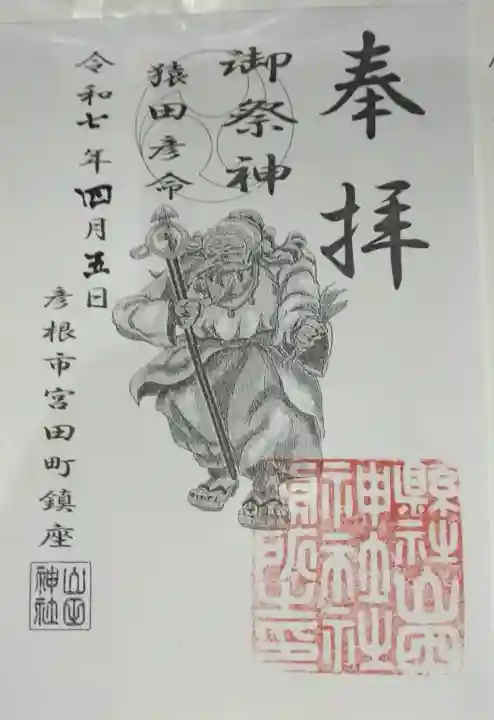 奉拝
御祭神
猿田彦命
令和七年四月五日
彦根市宮田町鎮座
山田
神社